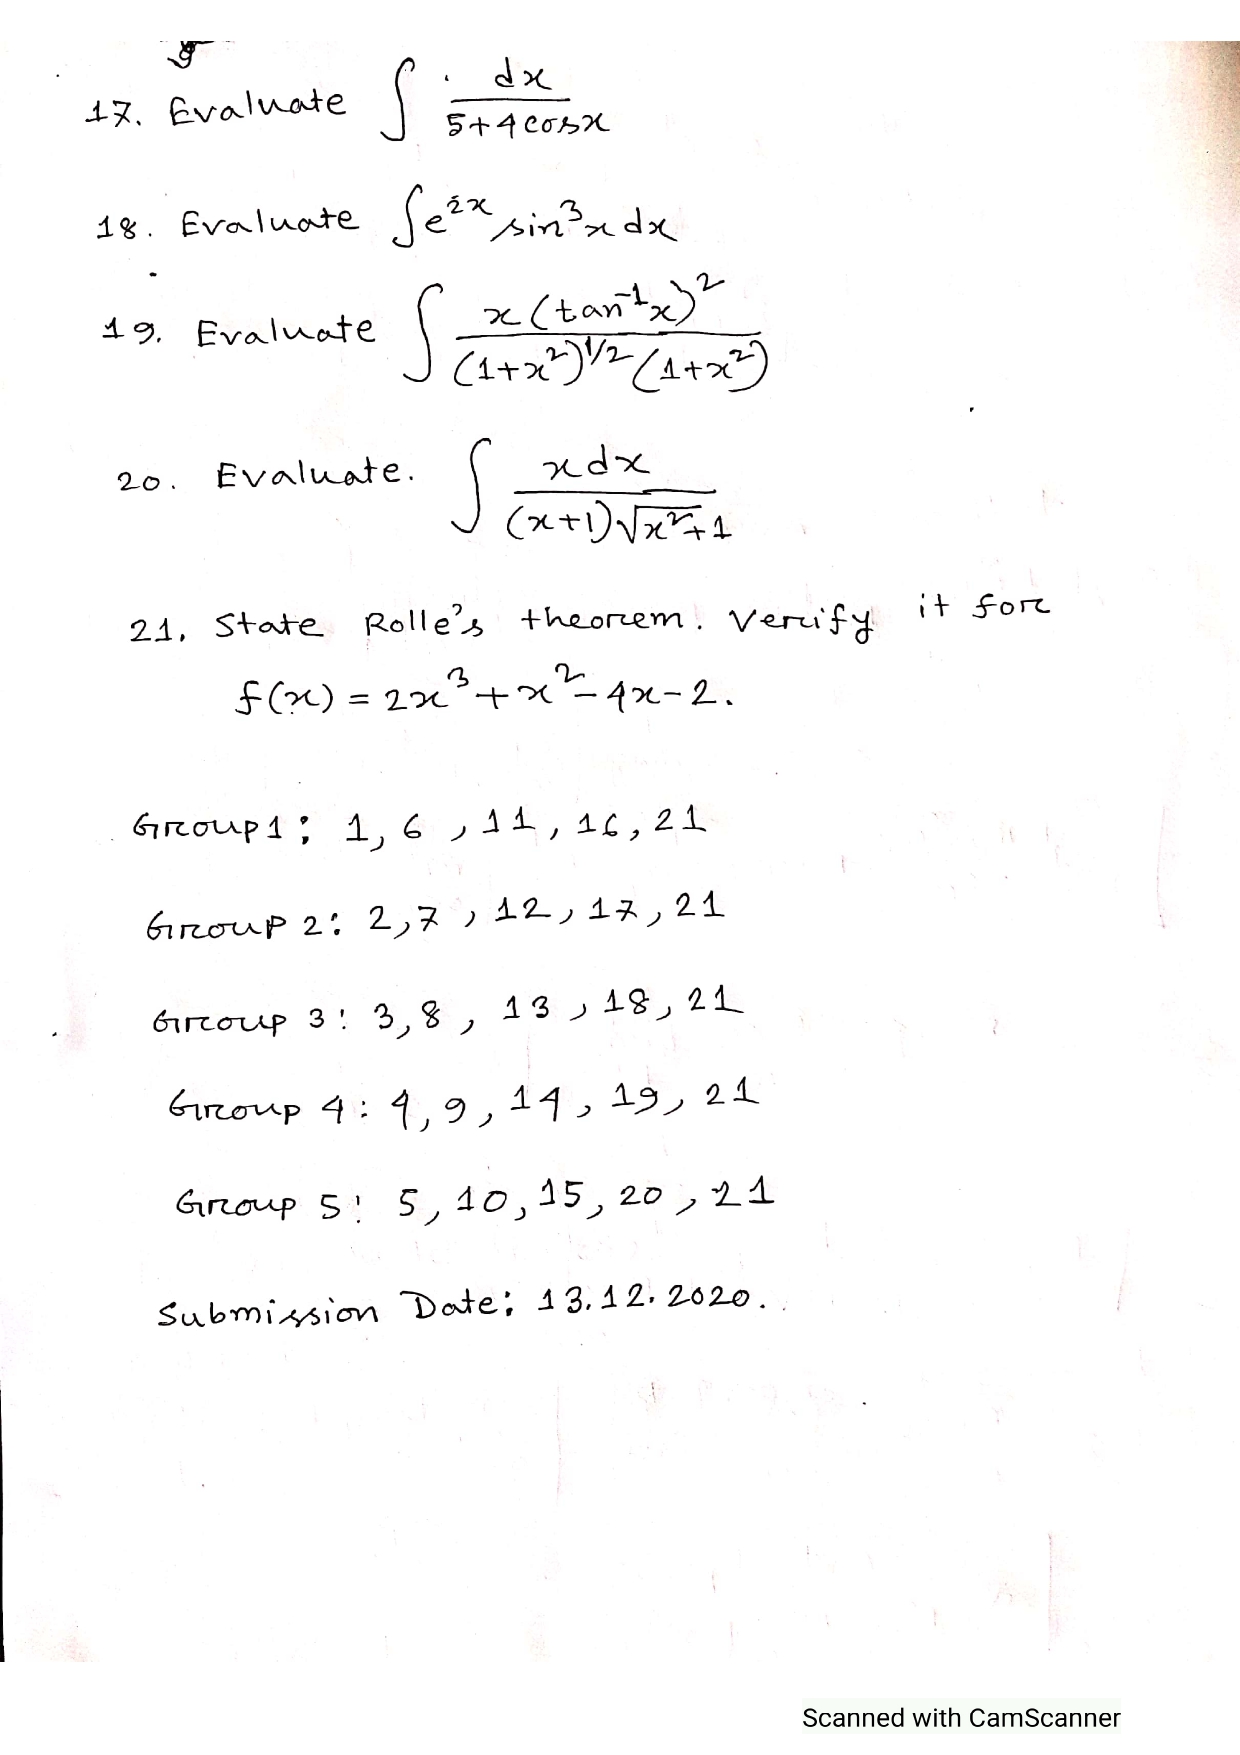 17. Evaluate ∫ dx / (5+4cosx)
18. Evaluate ∫e^2x sin^3 x dx
19. Evaluate ∫ x(tan^-1 x)^2 / ((1+x^2)^1/2 (1+x^2))
20. Evaluate. ∫ xdx / ((x+1)√(x^2+1))
21. State Rolle's theorem. Verify it for
f(x) = 2x^3+x^2-4x-2.
Group1: 1, 6, 11, 16, 21
Group 2: 2,7, 12, 17, 21
Group 3: 3,8, 13, 18, 21
Group 4: 4,9, 14, 19, 21
Group 5: 5, 10, 15, 20, 21
Submission Date: 13.12.2020.
Scanned with CamScanner